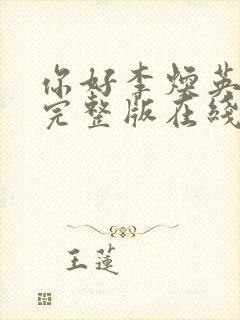 你好李焕英
完整版在线
王莲